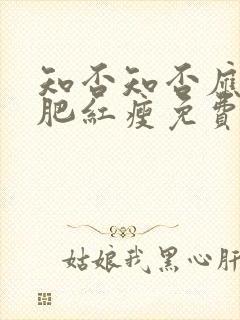 知否知否應
肥紅瘦免費
姑娘我黑心肝